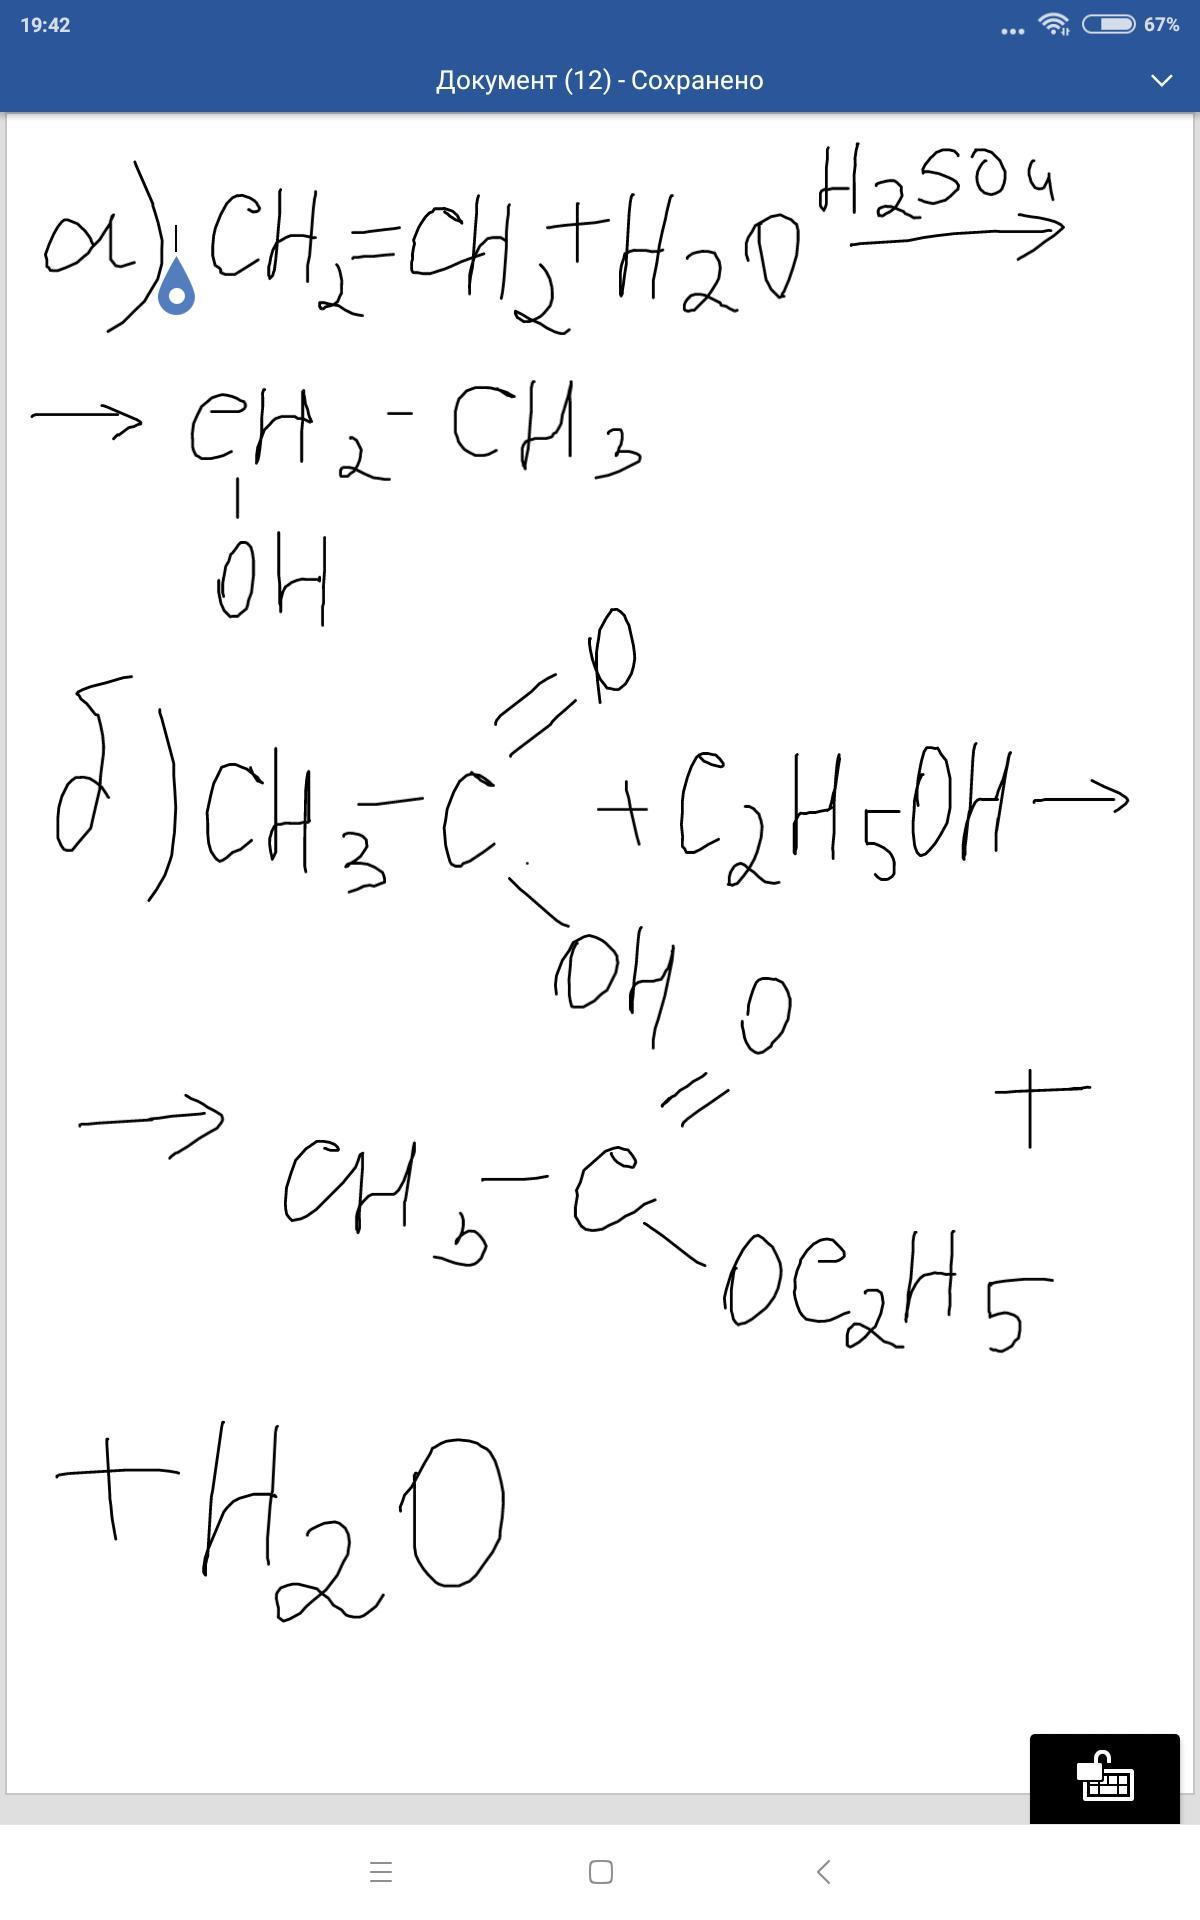 19:42 67%
Документ (12) - Сохранено
а) CH2=CH2+H2O H2SO4 →
→ CH2-CH3
|
OH
O
//
б) CH3-C +C2H5OH →
\
OH
O
//
→ CH3-C +
\
OC2H5
+H2O